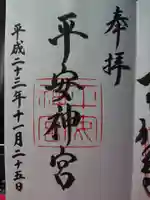 奉拝
平安神宮
平成二十三年十一月二十五日